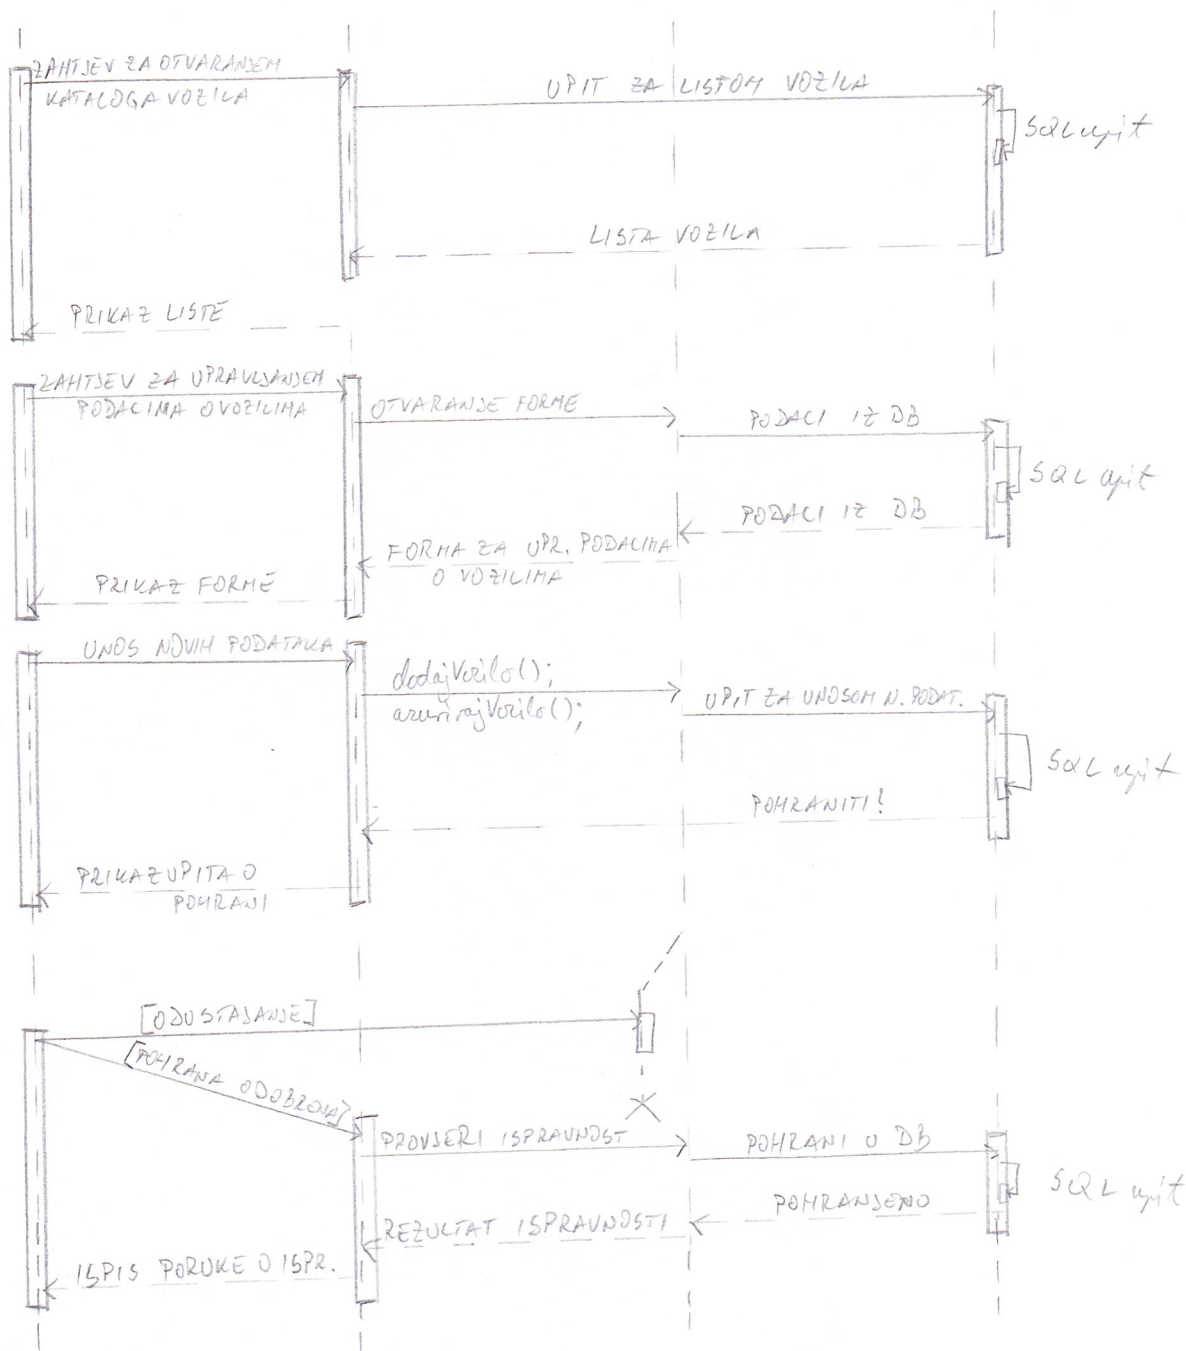 ZAHTJEV ZA OTVARANJEM
KATALOGA VOZILA
UPIT ZA LISTOM VOZILA
SQL upit
LISTA VOZILA
PRIKAZ LISTE
ZAHTJEV ZA UPRAVLJANJEM
PODACIMA O VOZILIMA
OTVARANJE FORME
PODACI IZ DB
SQL upit
PODACI IZ DB
FORMA ZA UPR. PODACIMA
O VOZILIMA
PRIKAZ FORME
UNOS NOVIH PODATAKA
dodajVozilo();
azurirajVozilo();
UPIT ZA UNOSOM N. PODAT.
SQL upit
POHRANITI?
PRIKAZ UPITA O
POHRANI
[ODUSTAJANJE]
[POHRANA ODOBRENA]
PROVJERI ISPRAVNOST
POHRANI U DB
SQL upit
POHRANJENO
REZULTAT ISPRAVNOSTI
ISPIS PORUKE O ISPR.